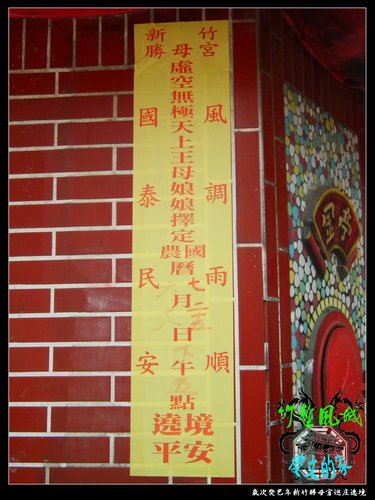 新竹
勝母宮
風調雨順
虛空無極天上王母娘娘擇定
農國
曆
月
日
午
點
遶境
平安
國泰民安
竹塹風城
歲次癸巳年新竹勝母宮巡庄遶境